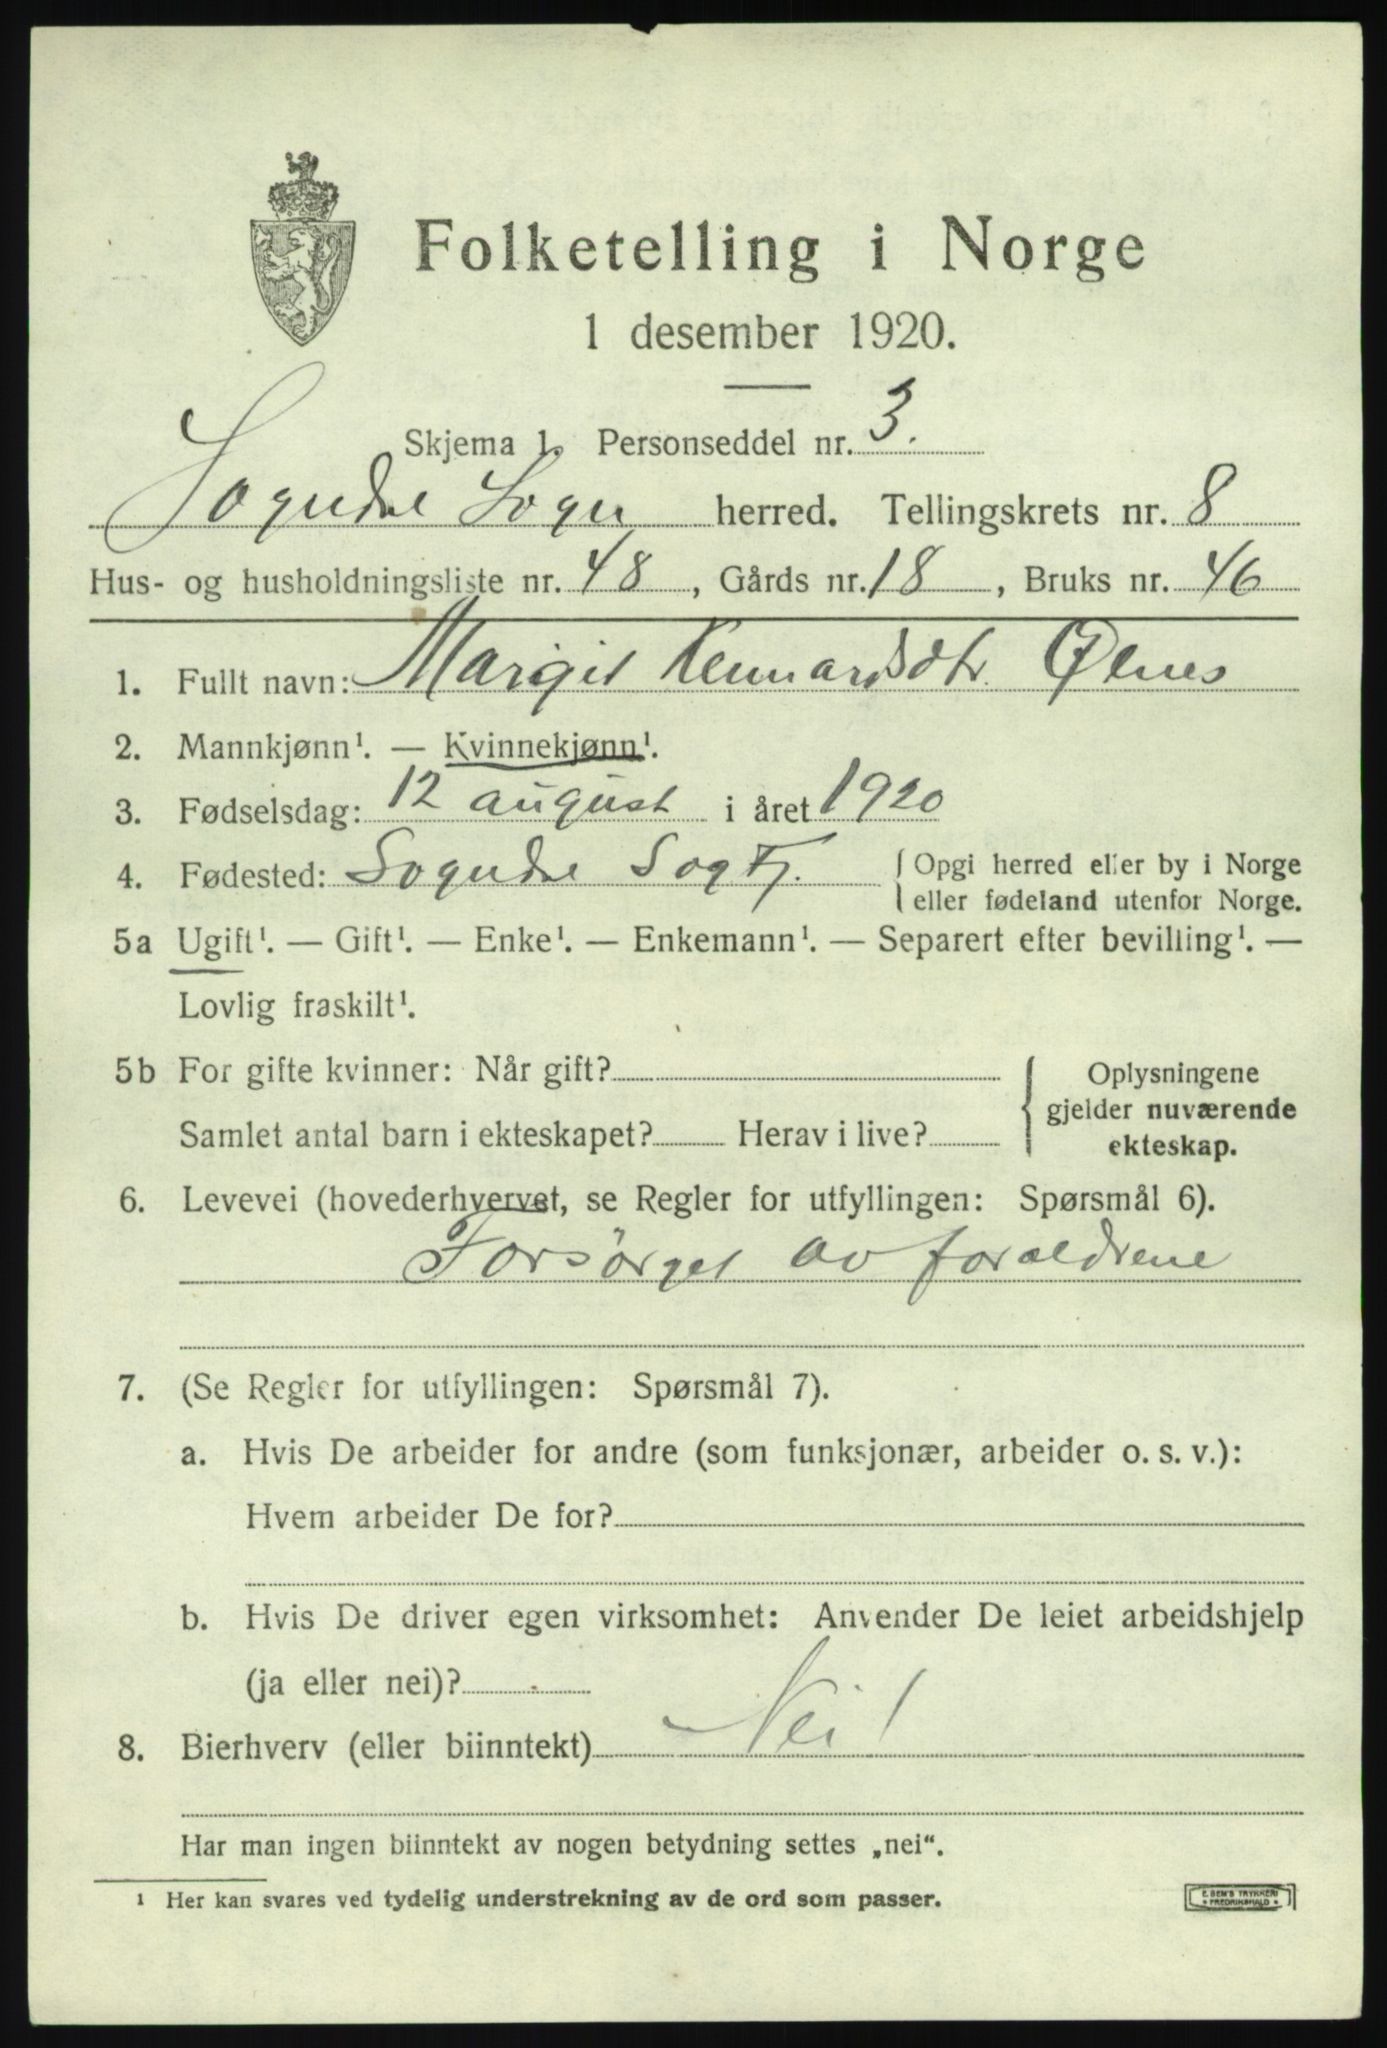 Folketelling i Norge
1 desember 1920.
Skjema 1. Personseddel nr. 3.
Sogndal Sogn herred. Tellingskrets nr. 8
Hus- og husholdningsliste nr. 48, Gårds nr. 18, Bruks nr. 46
1. Fullt navn: Margit Øenes
2. Mannkjønn¹. — Kvinnekjønn¹.
3. Fødselsdag: 12 august i året 1920
4. Fødested: Sogndal { Opgi herred eller by i Norge
eller fødeland utenfor Norge.
5a Ugift¹. — Gift¹. — Enke¹. — Enkemann¹. — Separert efter bevilling¹. —
Lovlig fraskilt¹.
5b For gifte kvinner: Når gift?
Samlet antal barn i ekteskapet? Herav i live?
{ Oplysningene
gjelder nuværende
ekteskap.
6. Levevei (hovederhvervet, se Regler for utfyllingen: Spørsmål 6).
Forsörget av foraeldrene
7. (Se Regler for utfyllingen: Spørsmål 7).
a. Hvis De arbeider for andre (som funksjonær, arbeider o. s. v.):
Hvem arbeider De for?
b. Hvis De driver egen virksomhet: Anvender De leiet arbeidshjelp
(ja eller nei)?
8. Bierhverv (eller biinntekt) Nei!
Har man ingen biinntekt av nogen betydning settes „nei“.
¹ Her kan svares ved tydelig understrekning av de ord som passer.
E. SEM'S TRYKKERI
FREDRIKSHALD